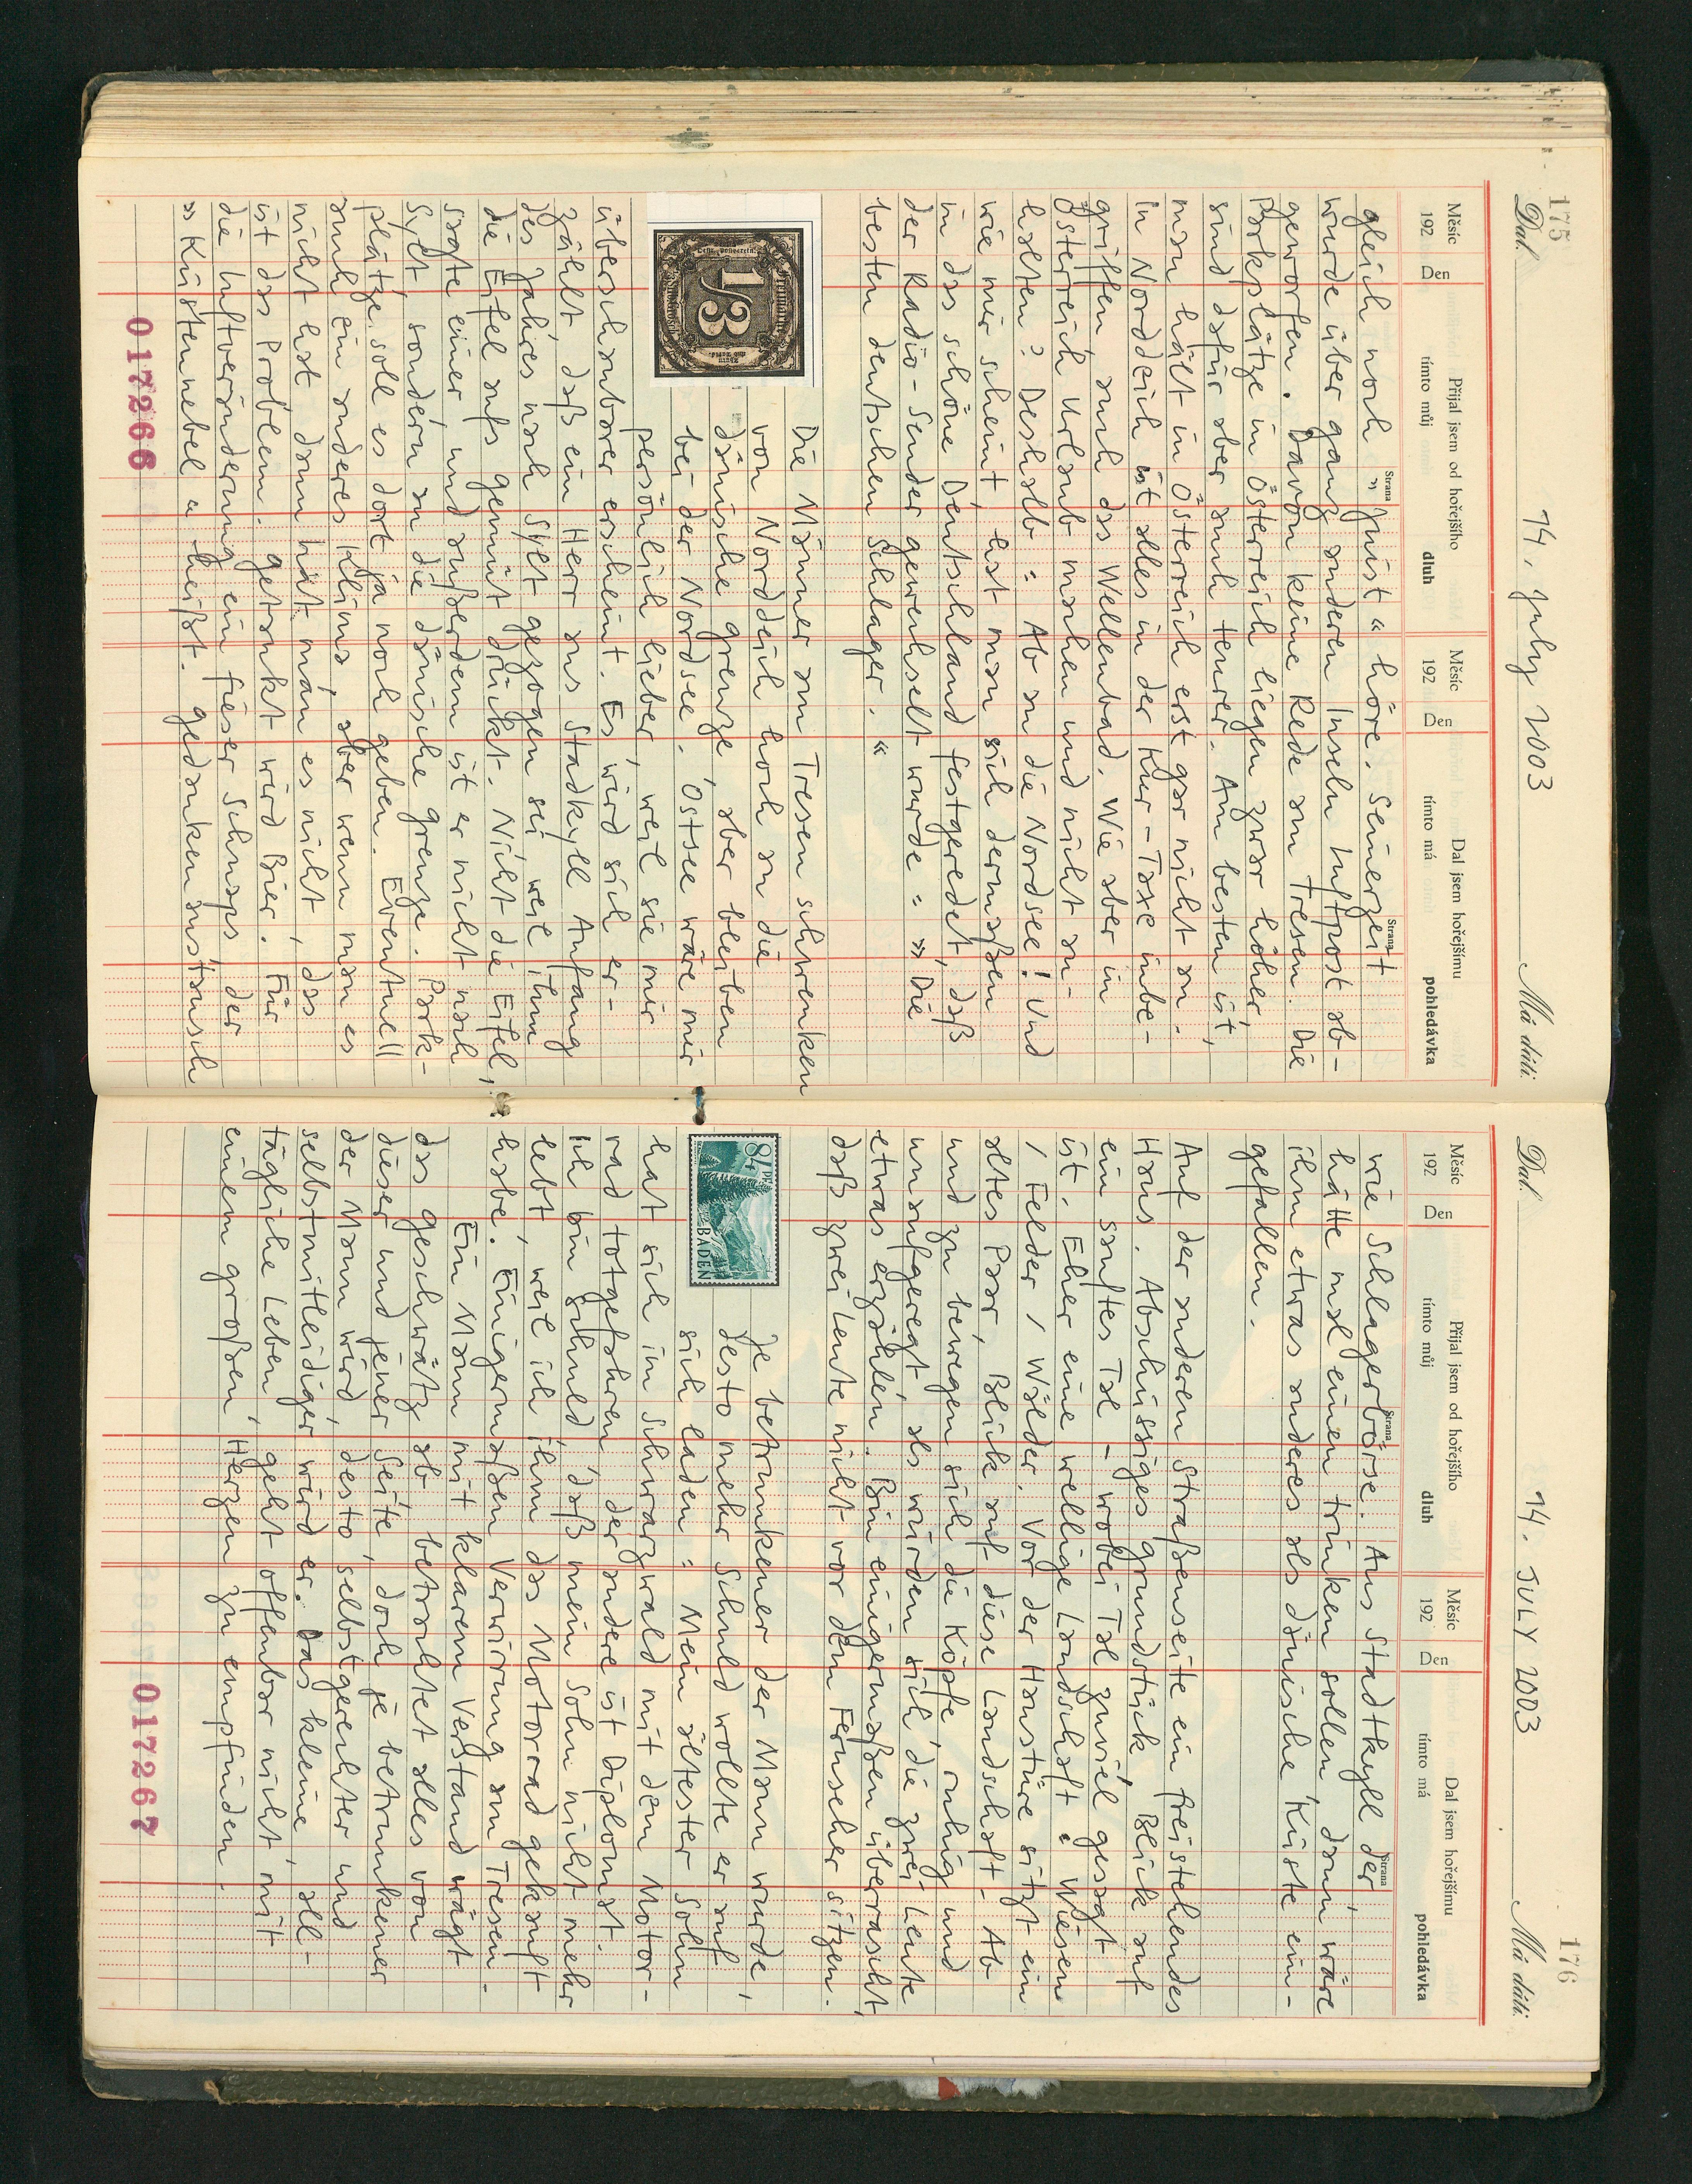 175
Dal.
14. July 2003
Má dáti.
Měsíc
192
Den
Přijal jsem od hořejšího
tímto můj
dluh
Měsíc
192
Den
Dal jsem hořejšímu
tímto má
pohledávka
Strana
Strana
gleich noch »Juist« höre. Seinerzeit
wurde über ganz anderen Inseln Luftpost ab-
geworfen. Davon keine Rede am Tresen. Die
Parkplätze in Österreich liegen zwar höher,
sind dafür aber auch teurer. Am besten ist,
man hält in Österreich erst gar nicht an.
In Norddeich ist alles in der Kur-Taxe inbe-
griffen, auch das Wellenbad. Wie aber in
Österreich Urlaub machen und nicht an-
halten? Deshalb: Ab an die Nordsee! Und
wie mir scheint, hat man sich dermaßen
in das schöne Deutschland festgeredet, daß
der Radio-Sender gewechselt wurde: »Die
besten deutschen Schlager.«
Die Männer am Tresen schwenken
von Norddeich hoch an die
dänische Grenze, aber bleiben
bei der Nordsee. Ostsee wäre mir
persönlich lieber, weil sie mir
überschaubarer erscheint. Es wird sich er-
zählt, daß ein Herr aus Stadkyll Anfang
des Jahres nach Sylt gezogen sei, weil ihm
die Eifel aufs Gemüt drückt. Nicht die Eifel,
sagte einer, und außerdem ist er nicht nach
Sylt, sondern an die dänische Grenze. Park-
plätze soll es dort ja noch geben. Eventuell
auch ein anderes Klima, aber wenn man es
nicht hat, dann hat man es nicht, das
ist das Problem. Getankt wird Bier. Für
die Luftveränderung ein fieser Schnaps der
»Küstennebel« heißt. Gedankenaustausch
1/3
017266
176
Dal.
14. JULY 2003
Má dáti.
Měsíc
192
Den
Přijal jsem od hořejšího
tímto můj
dluh
Měsíc
192
Den
Dal jsem hořejšímu
tímto má
pohledávka
Strana
Strana
wie Schlagerbörse. Aus Stadtkyll der
hätte mal einen trinken sollen, dann wäre
ihm etwas anderes als dänische Küste ein-
gefallen.
Auf der anderen Straßenseite ein freistehendes
Haus. Abschüssiges Grundstück, Blick auf
ein sanftes Tal – wobei Tal zuviel gesagt
ist. Eher eine wellige Landschaft: Wiesen
/ Felder / Wälder. Vor der Haustüre sitzt ein
altes Paar, Blick auf diese Landschaft. Ab
und zu bewegen sich die Köpfe, ruhig und
unaufgeregt, als würden sich die zwei Leute
etwas erzählen. Bin einigermaßen überrascht,
daß zwei Leute nicht vor dem Fernseher sitzen.
Je betrunkener der Mann wurde,
desto mehr Schuld wollte er auf
sich laden: Mein ältester Sohn
hat sich im Schwarzwald mit dem Motor-
rad totgefahren, der andere ist Diplomat.
Ich bin schuld, daß mein Sohn nicht mehr
lebt, weil ich ihm das Motorrad gekauft
habe. Einigermaßen Verwirrung am Tresen.
Ein Mann mit klarem Verstand wägt
das Geschwätz ab, betrachtet alles von
dieser und jener Seite, doch je betrunkener
der Mann wird, desto selbstgerechter und
selbstmitleidiger wird er. Das kleine, all-
tägliche Leben, geht offenbar nicht mit
einem großen Herzen zu empfinden.
84 Pf.
BADEN
017267